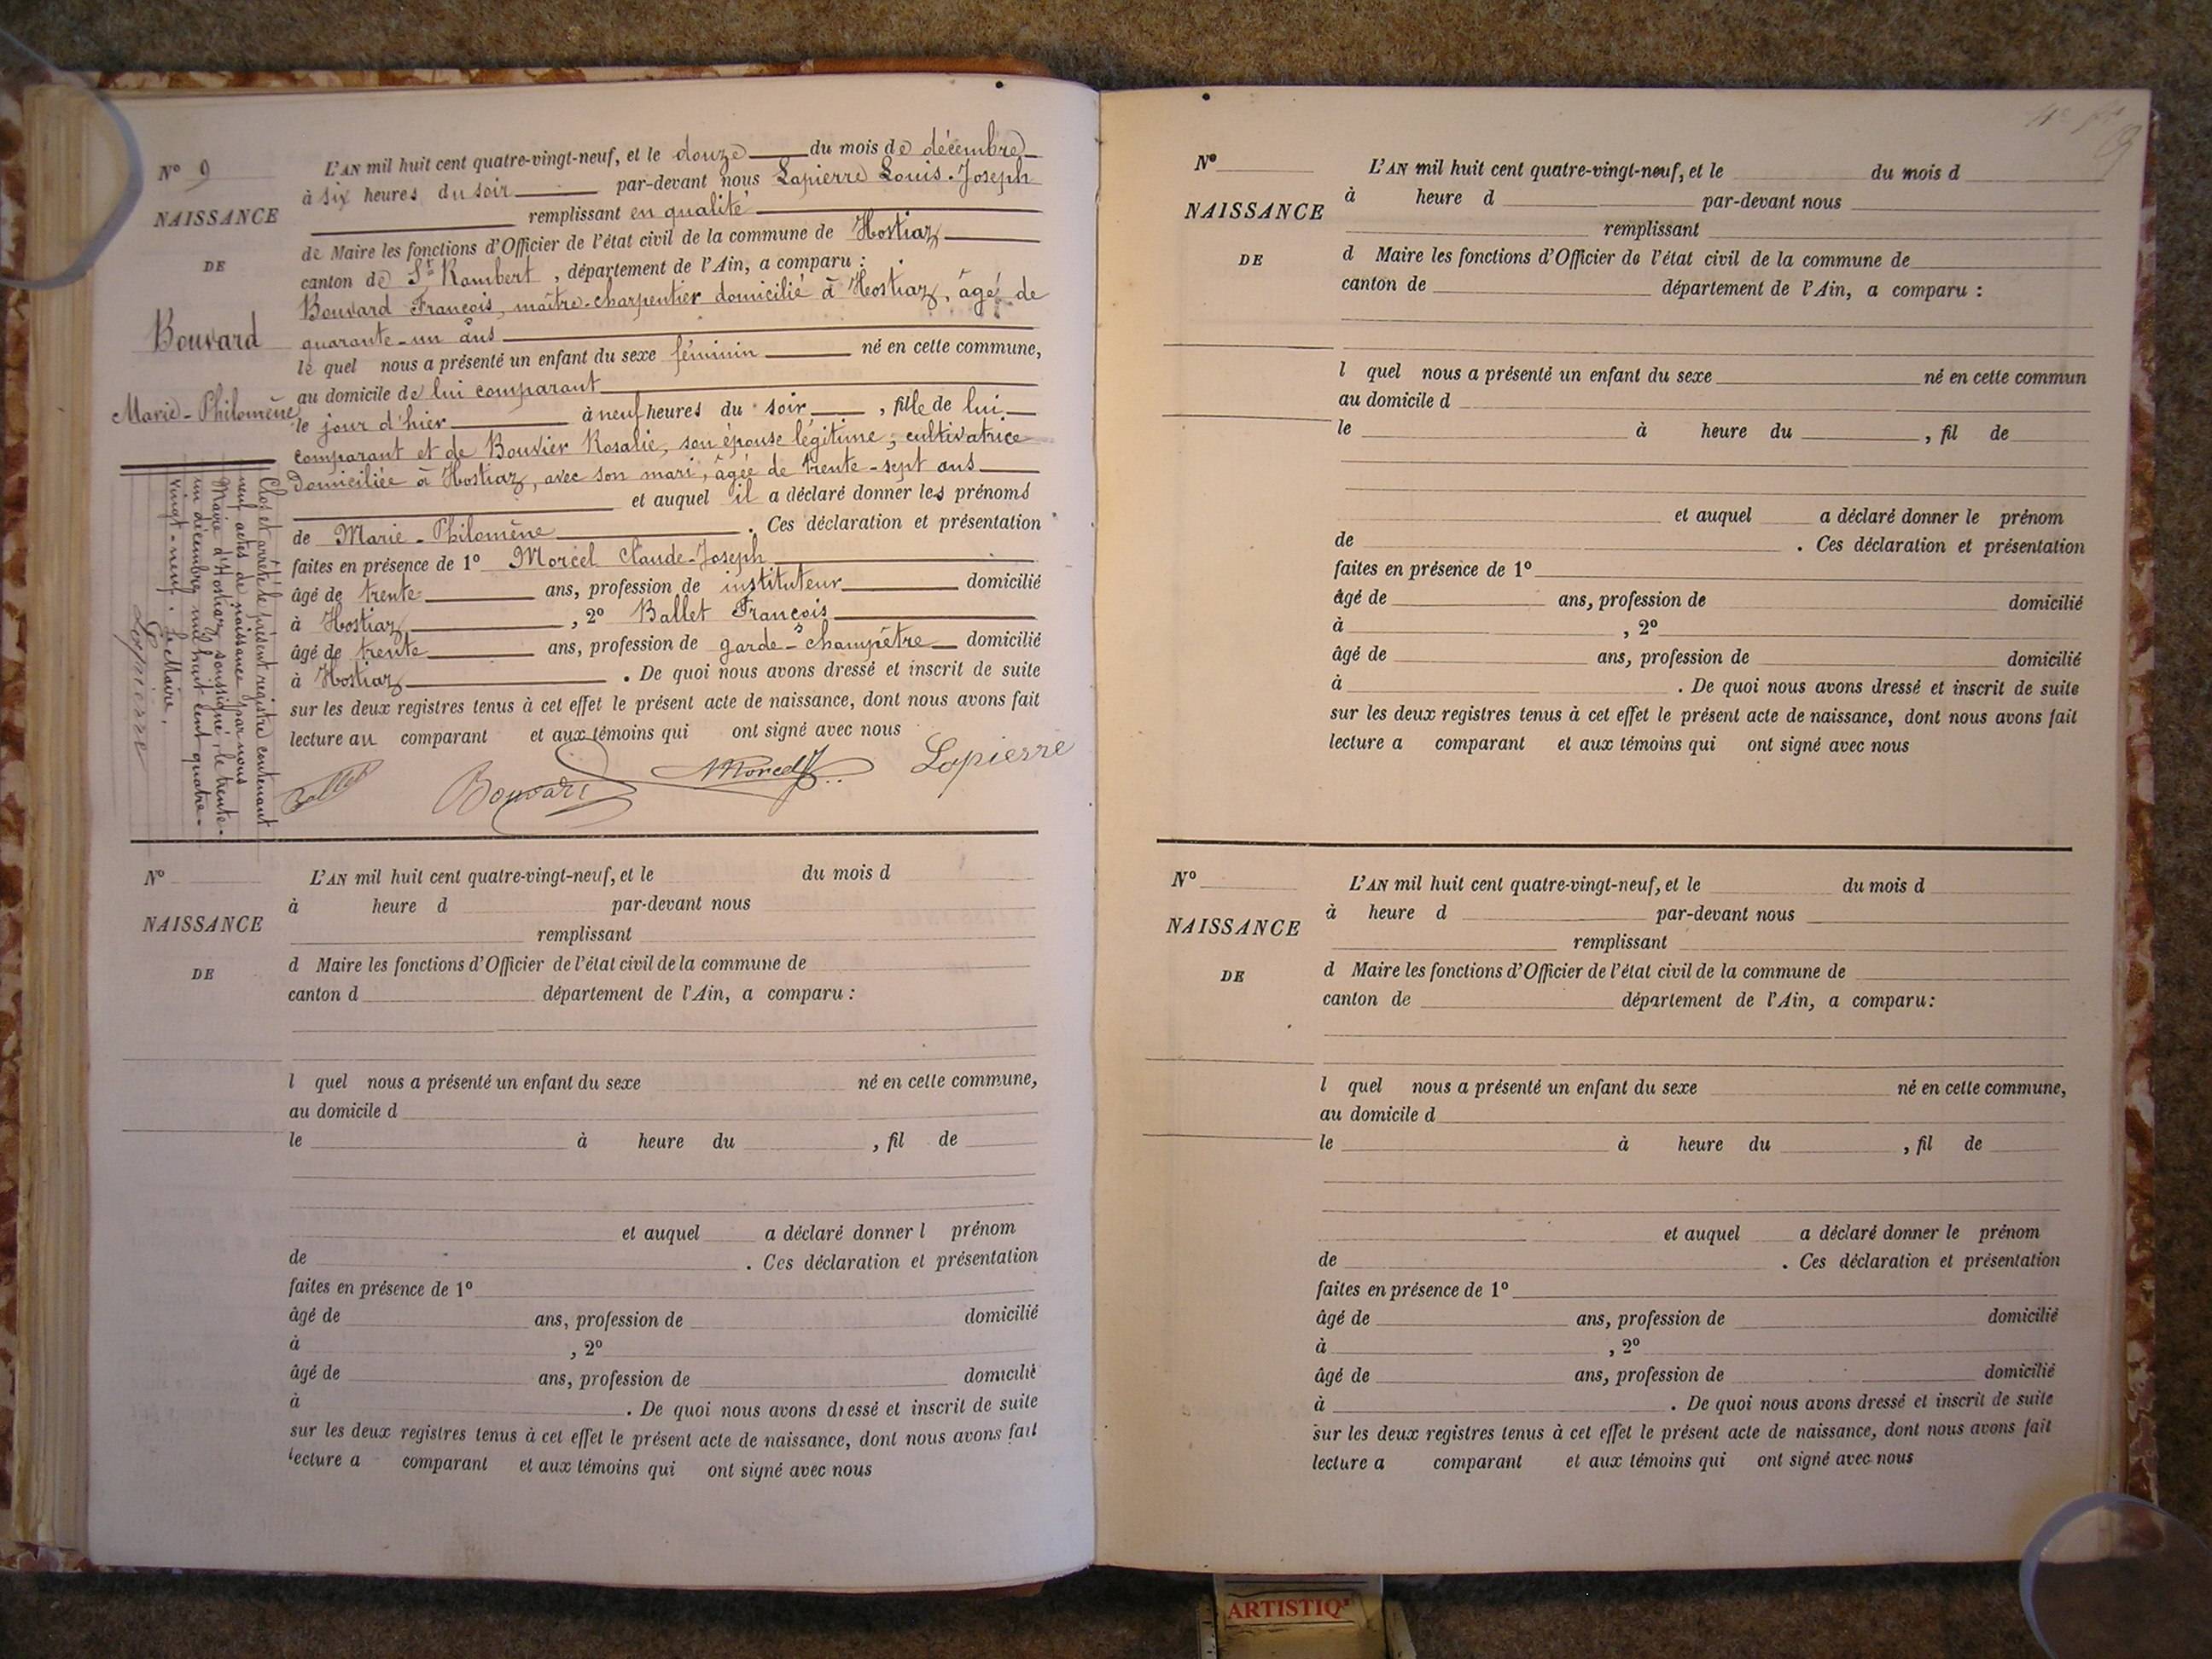 N° 9
NAISSANCE
DE
Bouvard
Marie-Philomène
L'AN mil huit cent quatre-vingt-neuf, et le douze du mois de décembre
à six heures du soir par-devant nous Lapierre Louis-Joseph
remplissant en qualité
de Maire les fonctions d'Officier de l'état civil de la commune de Hostiaz
canton de St Rambert, département de l'Ain, a comparu :
Bouvard François, maître-charpentier domicilié à Hostiaz, âgé de
quarante-un ans
le quel nous a présenté un enfant du sexe féminin né en cette commune,
au domicile de lui comparant
le jour d'hier à neuf heures du soir, fille de lui
comparant et de Bouvier Rosalie, son épouse légitime, cultivatrice
domiciliée à Hostiaz, avec son mari, âgée de trente-sept ans
et auquel il a déclaré donner les prénoms
de Marie-Philomène. Ces déclaration et présentation
faites en présence de 1° Morcel Claude-Joseph
âgé de trente ans, profession de instituteur domicilié
à Hostiaz, 2° Ballet François
âgé de trente ans, profession de garde-champêtre domicilié
à Hostiaz. De quoi nous avons dressé et inscrit de suite
sur les deux registres tenus à cet effet le présent acte de naissance, dont nous avons fait
lecture au comparant et aux témoins qui ont signé avec nous
Ballet Bouvard Morcel Lapierre
Clos et arrêté le présent registre contenant
neuf actes de naissance par nous
Maire d'Hostiaz soussigné, le trente-
un décembre mil huit cent quatre-
vingt-neuf. Le Maire,
Lapierre
N°
NAISSANCE
DE
L'AN mil huit cent quatre-vingt-neuf, et le du mois d
à heure d par-devant nous
remplissant
d Maire les fonctions d'Officier de l'état civil de la commune de
canton d département de l'Ain, a comparu :
l quel nous a présenté un enfant du sexe né en cette commune,
au domicile d
le à heure du , fil de
et auquel a déclaré donner l prénom
de . Ces déclaration et présentation
faites en présence de 1°
âgé de ans, profession de domicilié
à , 2°
âgé de ans, profession de domicilié
à . De quoi nous avons dressé et inscrit de suite
sur les deux registres tenus à cet effet le présent acte de naissance, dont nous avons fait
lecture a comparant et aux témoins qui ont signé avec nous
N°
NAISSANCE
DE
L'AN mil huit cent quatre-vingt-neuf, et le du mois d
à heure d par-devant nous
remplissant
d Maire les fonctions d'Officier de l'état civil de la commune de
canton de département de l'Ain, a comparu :
l quel nous a présenté un enfant du sexe né en cette commun
au domicile d
le à heure du , fil de
et auquel a déclaré donner le prénom
de . Ces déclaration et présentation
faites en présence de 1°
âgé de ans, profession de domicilié
à , 2°
âgé de ans, profession de domicilié
à . De quoi nous avons dressé et inscrit de suite
sur les deux registres tenus à cet effet le présent acte de naissance, dont nous avons fait
lecture a comparant et aux témoins qui ont signé avec nous
N°
NAISSANCE
DE
L'AN mil huit cent quatre-vingt-neuf, et le du mois d
à heure d par-devant nous
remplissant
d Maire les fonctions d'Officier de l'état civil de la commune de
canton de département de l'Ain, a comparu :
l quel nous a présenté un enfant du sexe né en cette commune,
au domicile d
le à heure du , fil de
et auquel a déclaré donner le prénom
de . Ces déclaration et présentation
faites en présence de 1°
âgé de ans, profession de domicilié
à , 2°
âgé de ans, profession de domicilié
à . De quoi nous avons dressé et inscrit de suite
sur les deux registres tenus à cet effet le présent acte de naissance, dont nous avons fait
lecture a comparant et aux témoins qui ont signé avec nous
ARTISTIQ